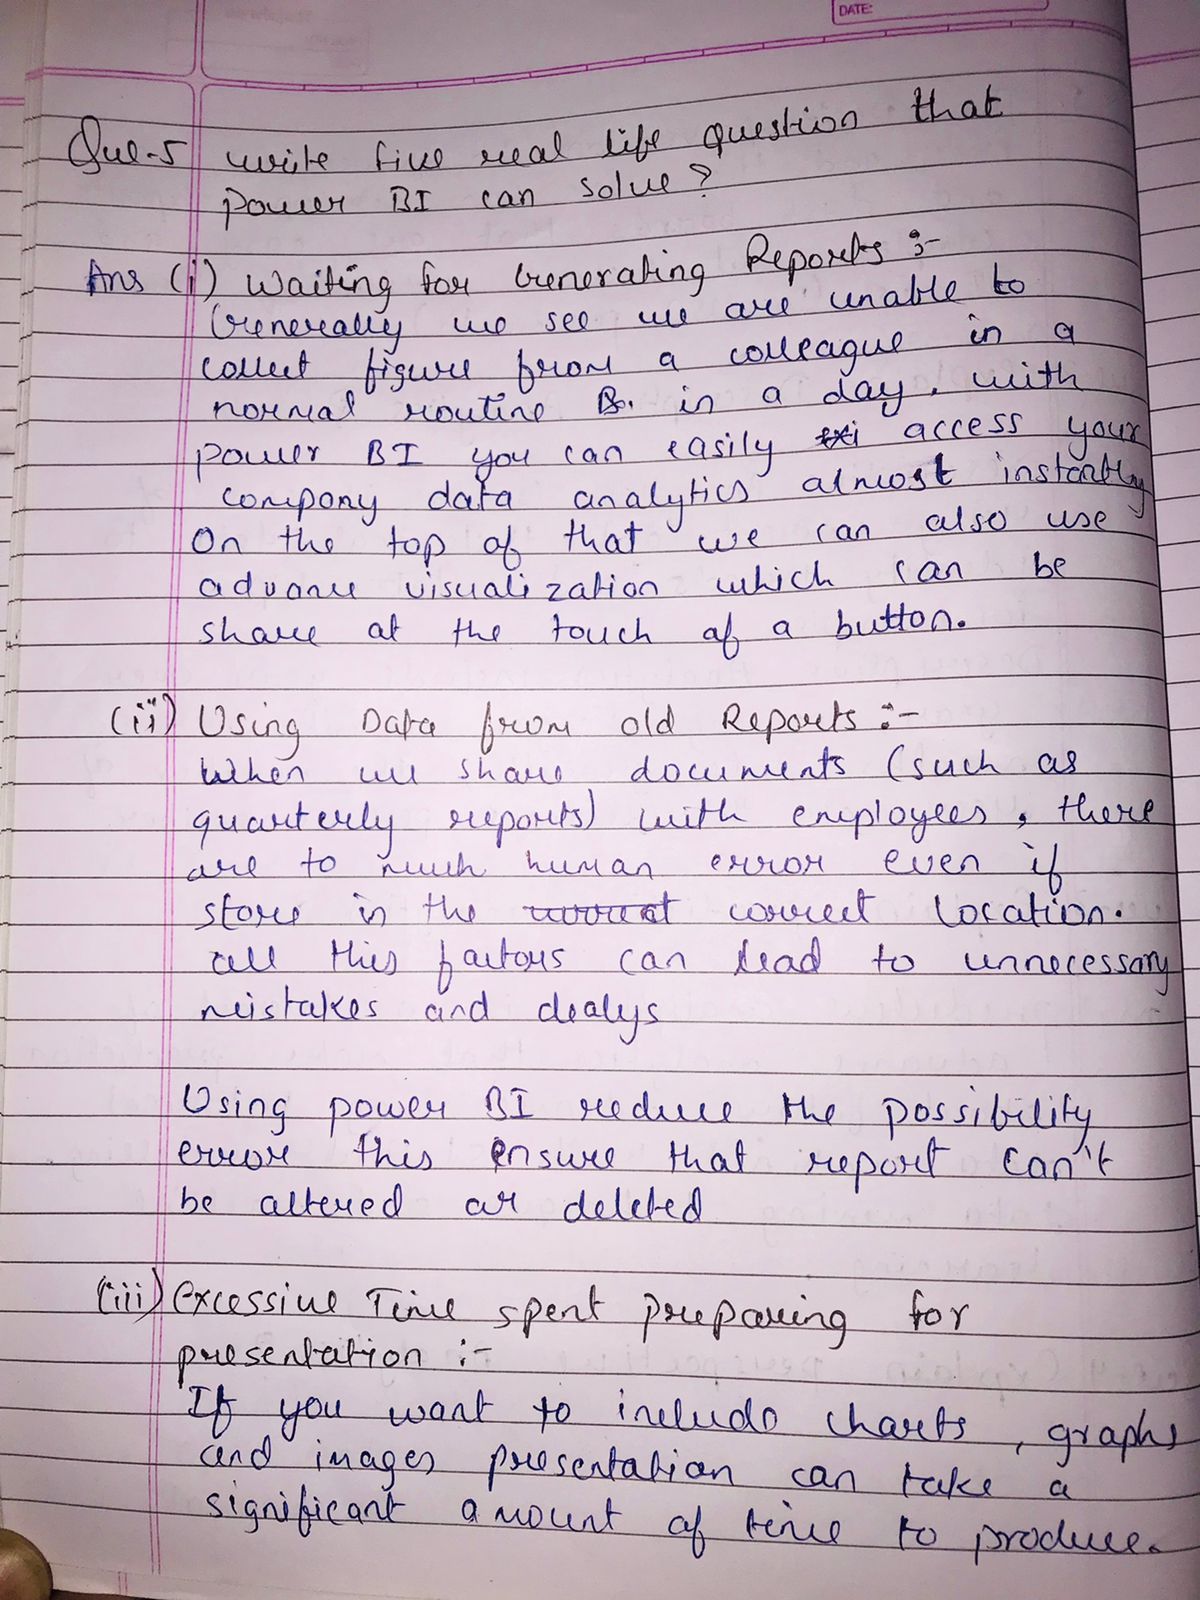 DATE:
Que-5 write five real life question that
power BI can solve?
Ans (i) Waiting for Generating Reports :-
Generally we see we are unable to
collect figure from a colleague in a
normal routine B. in a day. with
power BI you can easily access your
company data analytics almost instantly
On the top of that we can also use
advance visualization which can be
share at the touch of a button.
(ii) Using Data from old Reports :-
When we share documents (such as
quarterly reports) with employees, there
are to much human error even if
store in the correct location.
all this factors can lead to unnecessary
mistakes and dealys
Using power BI reduce the possibility
error this ensure that report can't
be altered or deleted
(iii) Excessive Time spent preparing for
presentation :-
If you want to include charts, graphs
and images presentation can take a
significant amount of time to produce.